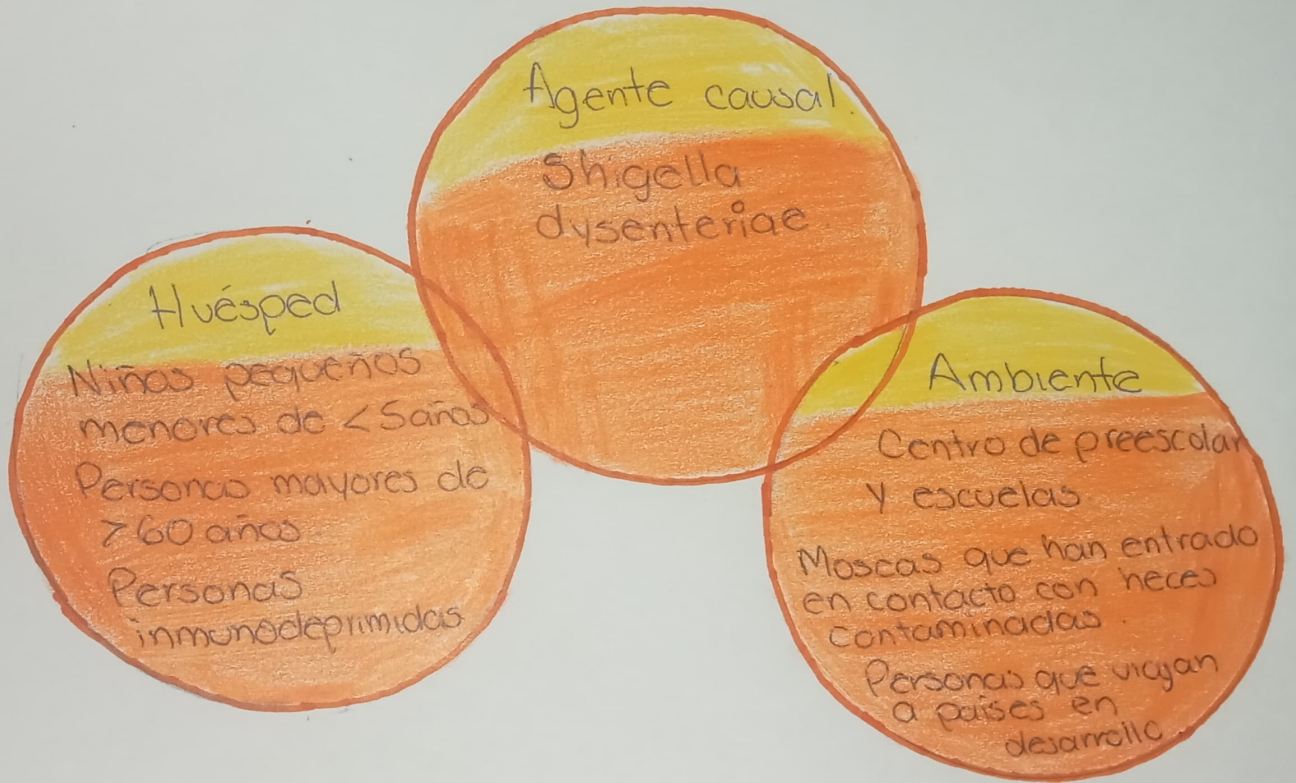 Agente causal
Shigella
dysenteriae
Huésped
Niños pequeños
menores de <5 años
Personas mayores de
>60 años
Personas
inmunodeprimidas
Ambiente
Centro de preescolar
y escuelas
Moscas que han entrado
en contacto con heces
contaminadas.
Personas que viajan
a países en
desarrollo